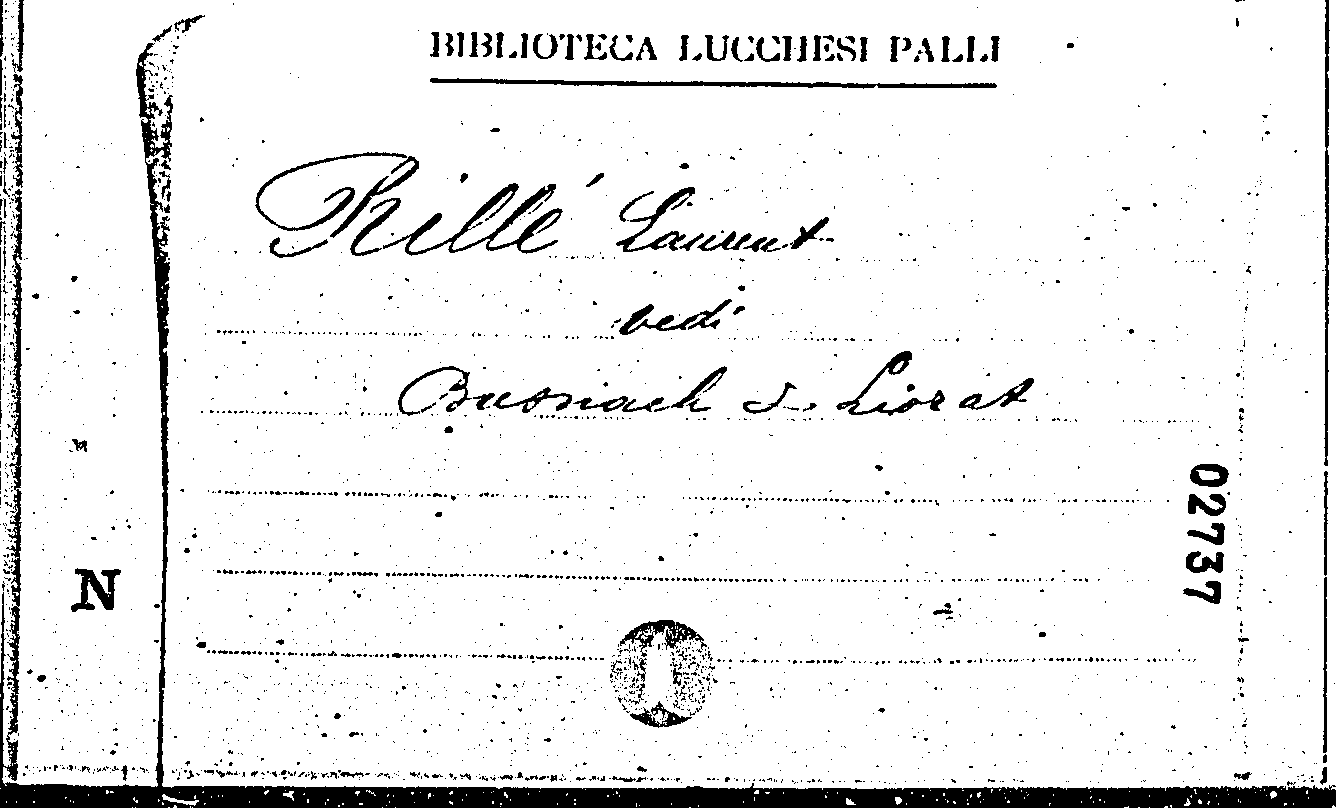 BIBLIOTECA LUCCHESI PALLI
Rillé Laurent
vedi
Busnach & Liorat
02737
N